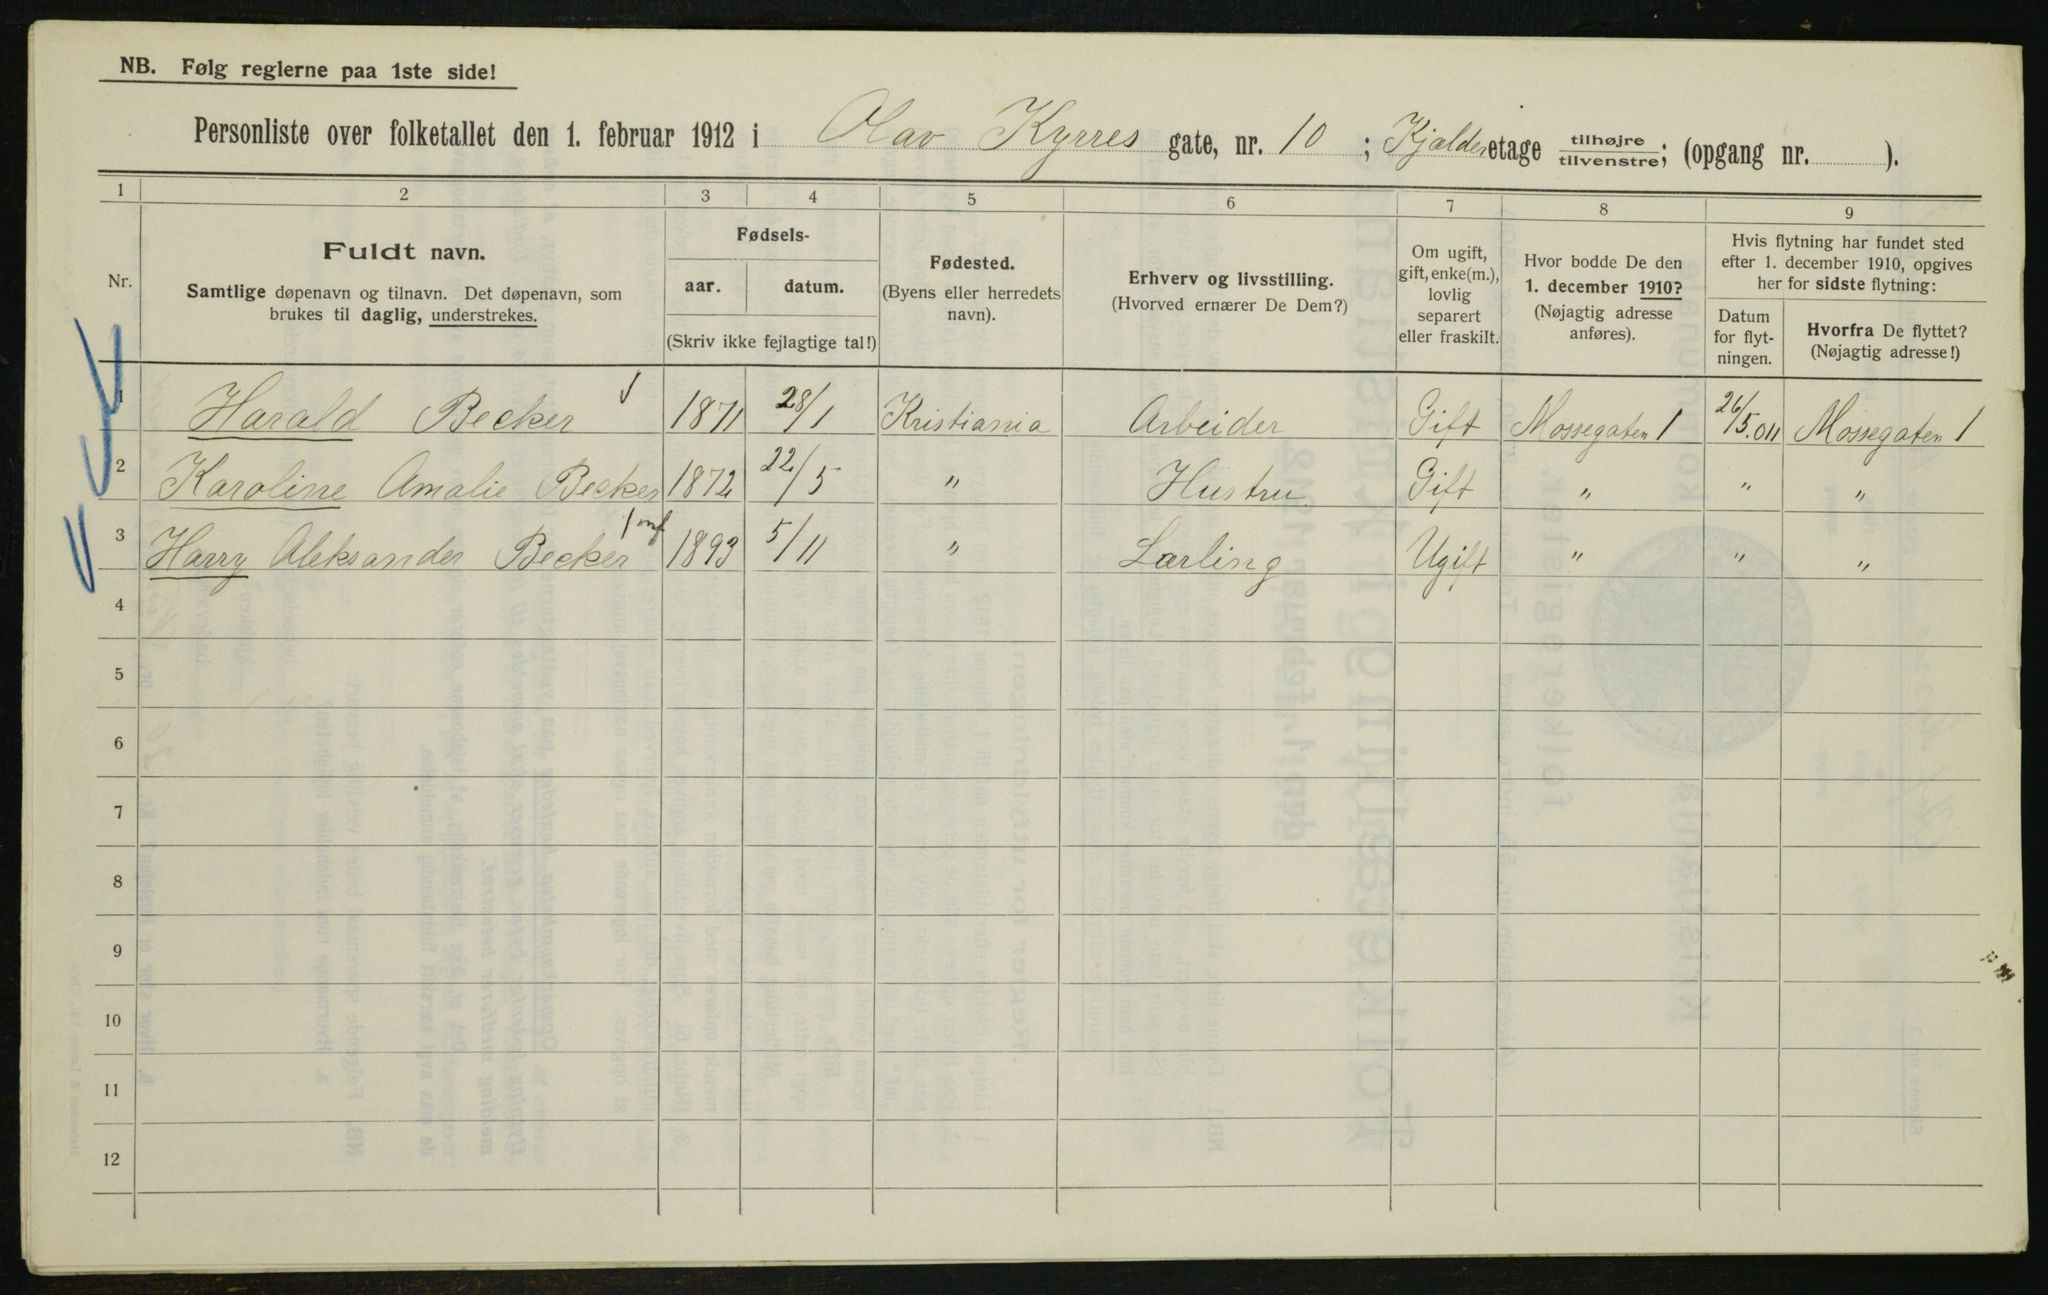 NB. Følg reglerne paa 1ste side!
Personliste over folketallet den 1. februar 1912 i Olav Kyrres gate, nr. 10 ; Kjælderetage tilhøjre/tilvenstre; (opgang nr. ).
1 2 3 4 5 6 7 8 9
Nr.
Fuldt navn.
Samtlige døpenavn og tilnavn. Det døpenavn, som
brukes til daglig, understrekes.
Fødsels-
aar. datum.
(Skriv ikke fejlagtige tal!)
Fødested.
(Byens eller herredets
navn).
Erhverv og livsstilling.
(Hvorved ernærer De Dem?)
Om ugift,
gift, enke(m.),
lovlig
separert
eller fraskilt.
Hvor bodde De den
1. december 1910?
(Nøjagtig adresse
anføres).
Hvis flytning har fundet sted
efter 1. december 1910, opgives
her for sidste flytning:
Datum
for flyt-
ningen.
Hvorfra De flyttet?
(Nøjagtig adresse!)
1 Harald Becker 1871 28/1 Kristiania Arbeider Gift Mossegaten 1 26/5.011 Mossegaten 1
2 Karoline Amalie Becker 1872 22/5 " Hustru Gift " " "
3 Harry Aleksander Becker 1893 5/11 " Lærling Ugift " " "
4
5
6
7
8
9
10
11
12